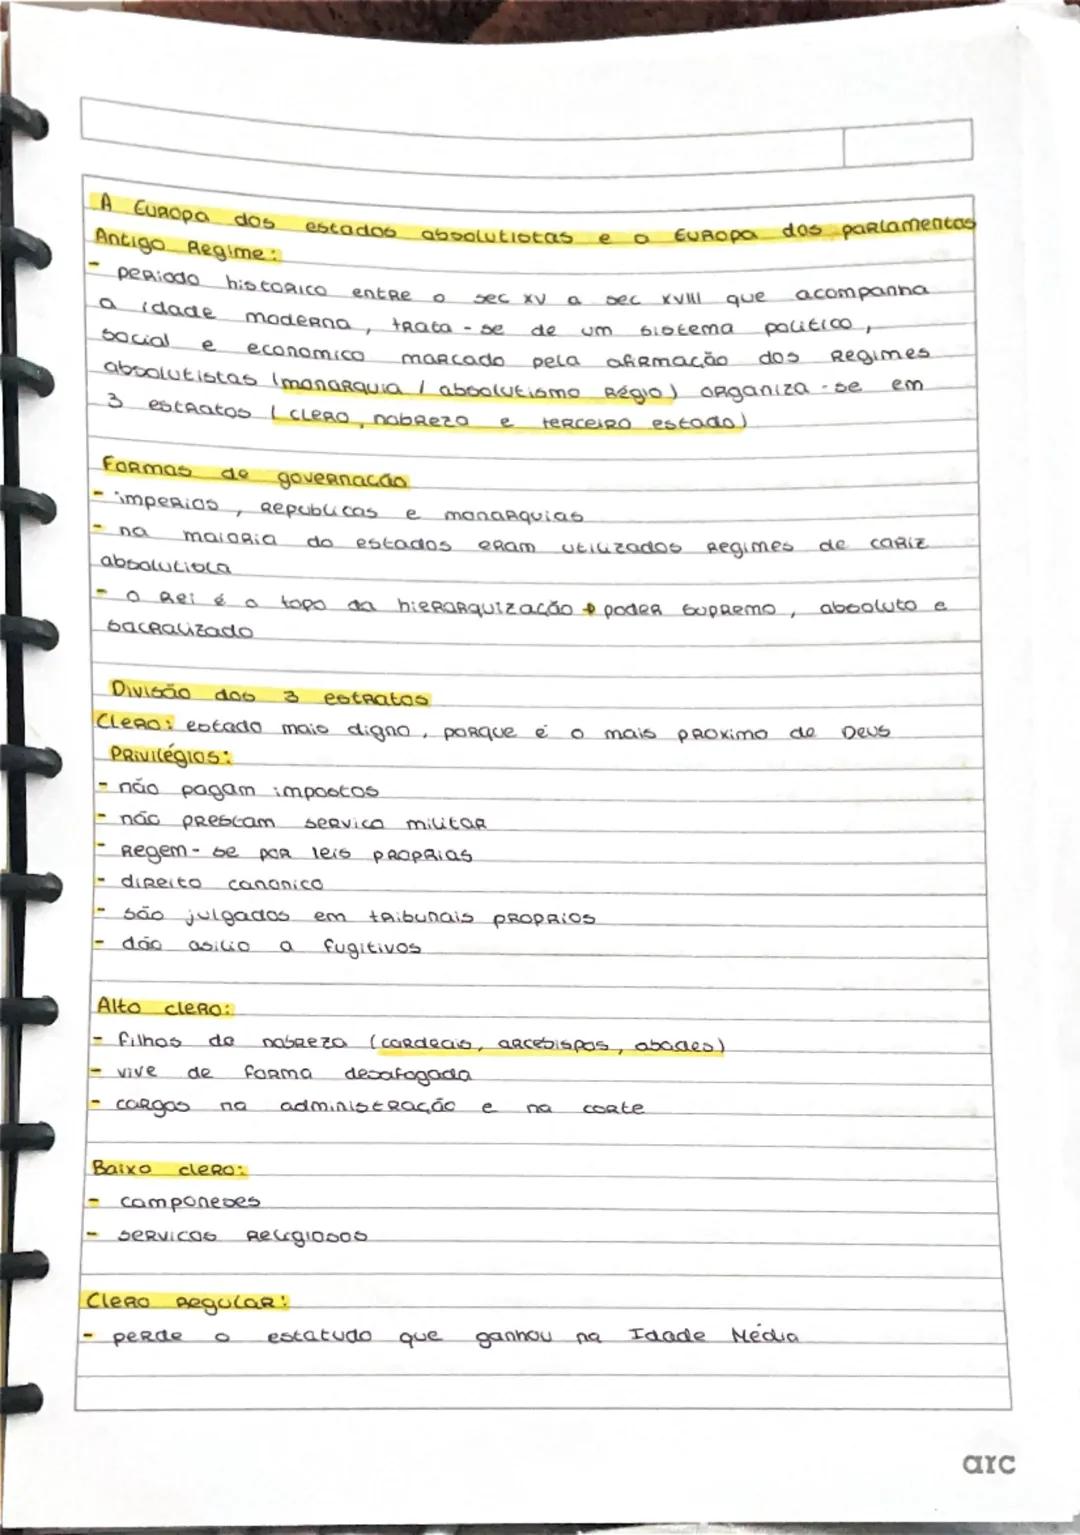 A Europa dos estados absolutistas e a Europa dos parlamentos
Antigo Regime:
- periodo historico entre o sec XV a sec XVIII que acompanha
a idade moderna, trata-se de um sistema politico,
social e economico marcado pela afirmação dos Regimes
absolutistas (monarquia / absolutismo Régio) organiza-se em
3 estratos (clero, nobreza e terceiro estado)
Formas de governacão
- imperios, Republicas e monarquias
- na maioria do estados eram utilizados Regimes de cariz
absolutista
- o Rei é o topo da hierarquização → poder supremo, absoluto e
sacralizado
Divisão dos 3 estratos
Clero: estado mais digno, porque é o mais proximo de Deus
Privilégios:
- não pagam impostos
- não prestam servico militar
- Regem-se por leis proprias
- direito canonico
- são julgados em tribunais proprios
- dão asilio a fugitivos
Alto clero:
- filhos da nobreza (cardeais, arcebispos, abades)
- vive de forma desafogada
- cargos na administração e na corte
Baixo clero:
- camponeses
- servicos religiosos
Clero Regular:
- perde o estatudo que ganhou na Idade Média
arc